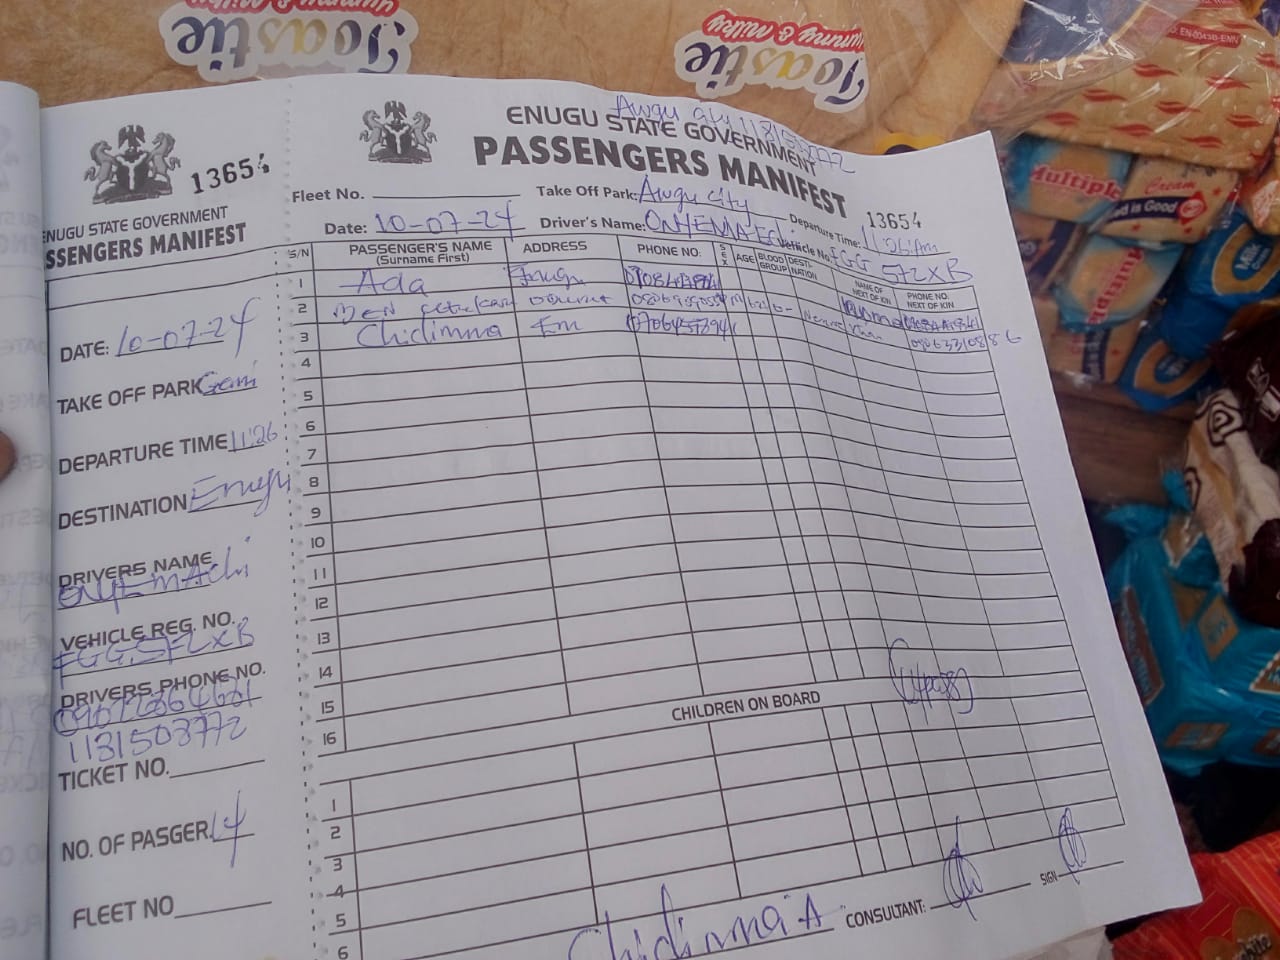 Yummy & Milky
Toastie
Yummy & Milky
Toastie
ID: EN-0043B-ENN
Multiple
Cream
ed is Good
Milk
13654
ENUGU STATE GOVERNMENT
SSENGERS MANIFEST
DATE: 10-07-24
TAKE OFF PARK
DEPARTURE TIME 11:26
DESTINATION Enugu
DRIVERS NAME
ONYEMAChi
VEHICLE REG. NO.
FGG 572XB
DRIVERS PHONE NO.
1131503772
TICKET NO.
NO. OF PASGER. 14
FLEET NO
Awgu city 1131503772
ENUGU STATE GOVERNMENT
PASSENGERS MANIFEST
13654
Fleet No. Take Off Park: Awgu city Departure Time: 11:26am
Date: 10-07-24 Driver's Name: ONYEMAEchi Vehicle No. FGG 572XB
S/N PASSENGER'S NAME (Surname First) ADDRESS PHONE NO. SEX AGE BLOOD GROUP DESTI-NATION NAME OF NEXT OF KIN PHONE NO. NEXT OF KIN
1 Ada Enugu
2 BEN
3 Chidimma Em
4
5
6
7
8
9
10
11
12
13
14
15
16
CHILDREN ON BOARD
1
2
3
4
5
6
Chidimma A CONSULTANT: SIGN